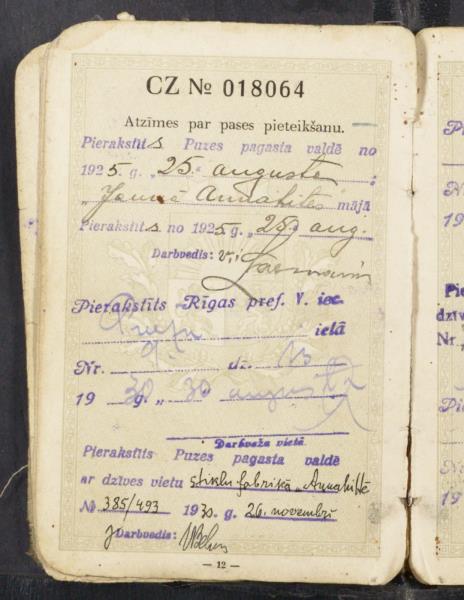 CZ № 018064
Atzīmes par pases pieteikšanu.
Pierakstīts Puzes pagasta valdē no
1925. g. „25. augustā
„Jaunā Annahites" mājā
Pierakstīts no 1925 g. „25" aug.
Darbvedis:
Pierakstīts Rīgas pref. V. iec.
ielā
Nr. 9. dz. 13
1930 g. „30 augustā
Darbveža vietā
Pierakstīts Puzes pagasta valdē
ar dzīves vietu stiklu fabrikā „Annahitē
№ 385/493 1930. g. 26. novembrī
Darbvedis:
— 12 —
P
19
Pie
dzīv
Nr. „
Pi
19